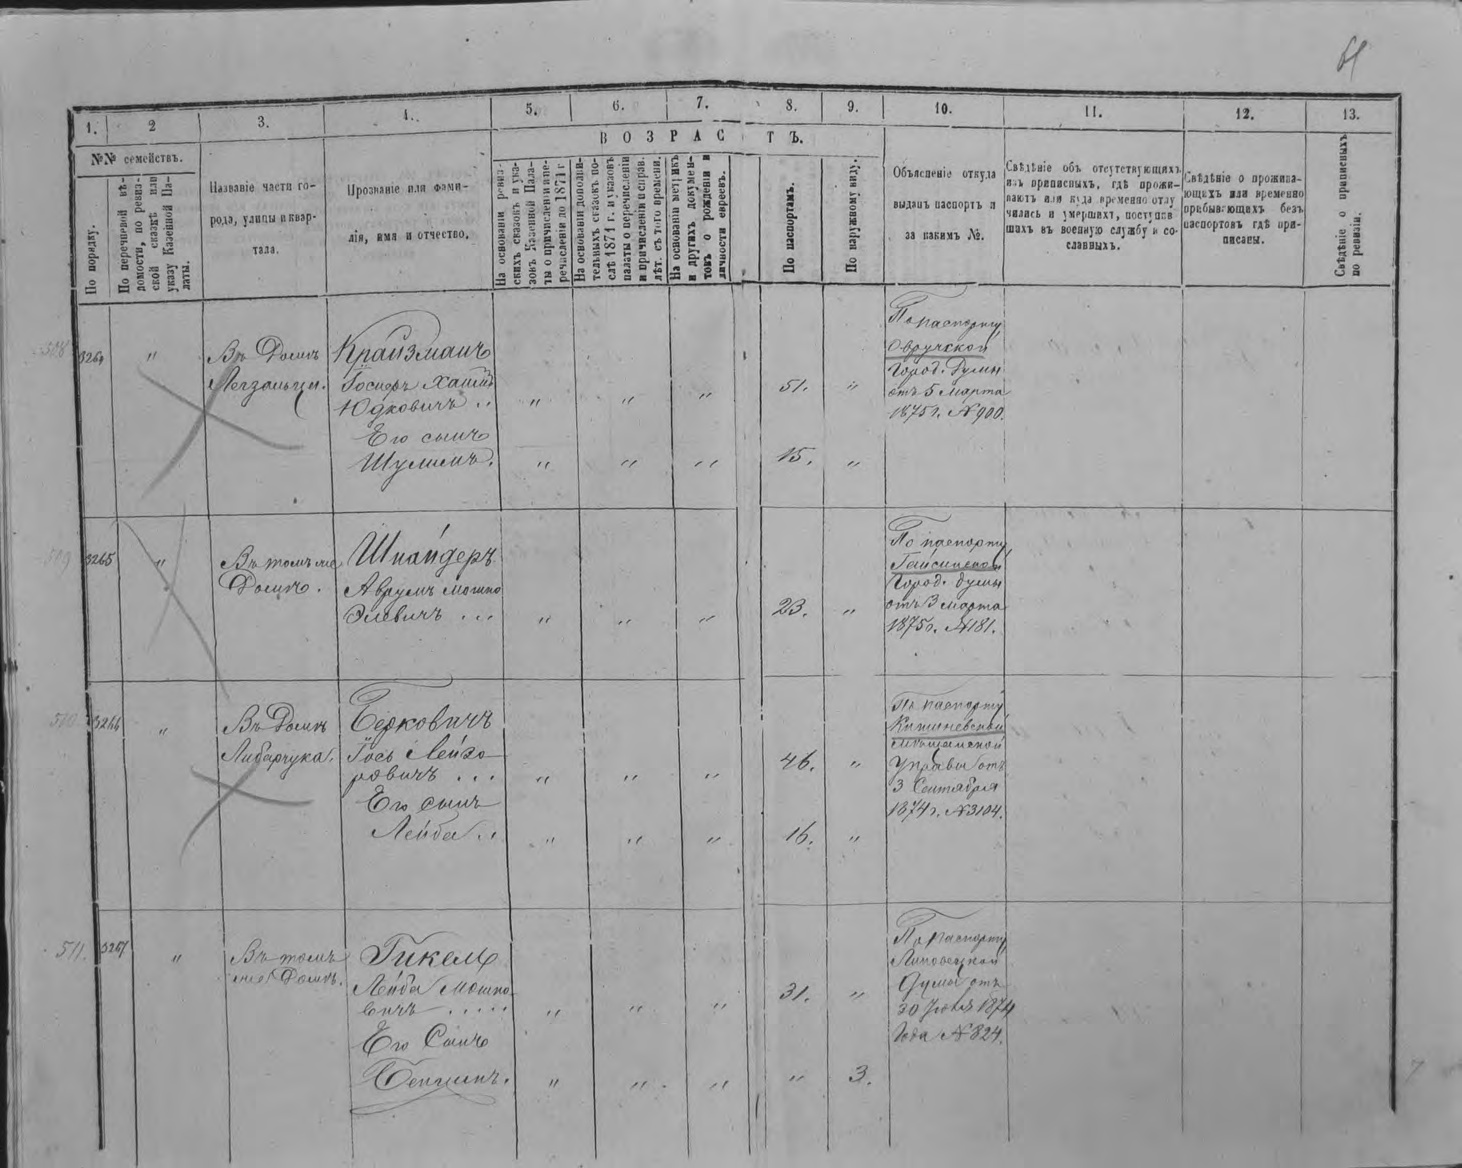 61
1. 2 3. 4. 5. 6. 7. 8. 9. 10. 11. 12. 13.
ВОЗРАСТЪ.
№№ семействъ.
По порядку.
По перечневой вѣ-
домости, по ревиз-
ской сказкѣ или
указу Казенной Па-
латы.
Названіе части го-
рода, улицы и квар-
тала.
Прозваніе или фами-
лія, имя и отчество.
На основаніи ревиз-
скихъ сказокъ и ука-
зовъ Казенной Пала-
ты о причисленіи и пе-
речисленіи до 1871 г
На основаніи дополни-
тельныхъ сказокъ по-
слѣ 1871 г. и указовъ
палаты о перечисленіи
и причисленіи и справ.
лѣт. съ того времени.
На основаніи метрикъ
и другихъ докумен-
товъ о рожденіи и
личности евреевъ.
По паспортамъ.
По наружному виду.
Объясненіе откуда
выданъ паспортъ и
за какимъ №.
Свѣдѣніе объ отсутствующихъ
изъ приписныхъ, гдѣ прожи-
ваютъ или куда временно отлу
чились и умершихъ, поступив
шихъ въ военную службу и со-
сланныхъ.
Свѣдѣніе о прожива-
ющихъ или временно
прибывающихъ безъ
паспортовъ гдѣ при-
писаны.
Свѣдѣніе о приписныхъ
по ревизіи.
508 3264 " Въ Домѣ
Крайзманъ
Іосифъ Хаимъ
Юдковичъ .. " " " 51. "
Его сынъ
Шулимъ. " " " 15. "
По паспорту
Овручской
Город. Думы
отъ 5 Марта
1875 г. № 900.
509 3265 " Въ томъ же
Домѣ.
Шнайдеръ
Аврумъ Мошко
Элевичъ ... " " " 23. "
По паспорту
Гайсинской
Город. думы
отъ 3 марта
1875 г. № 181.
510 3266 " Въ Домѣ
Либарчука.
Берковичъ
Іось Лейзо
ровичъ ... " " " 46. "
Его сынъ
Лейба .. " " " 16. "
По паспорту
Кишиневской
мѣщанской
Управы отъ
3 Сентября
1874 г. № 3104.
511. 3267 " Въ томъ
же Домѣ.
Гикель
Лейба Мошко-
вичъ ..... " " " 31. "
Его Сынъ
Бенціинъ. " " " " 3.
По паспорту
Липовецкой
Думы отъ
30 Іюля 1874
Года № 824.